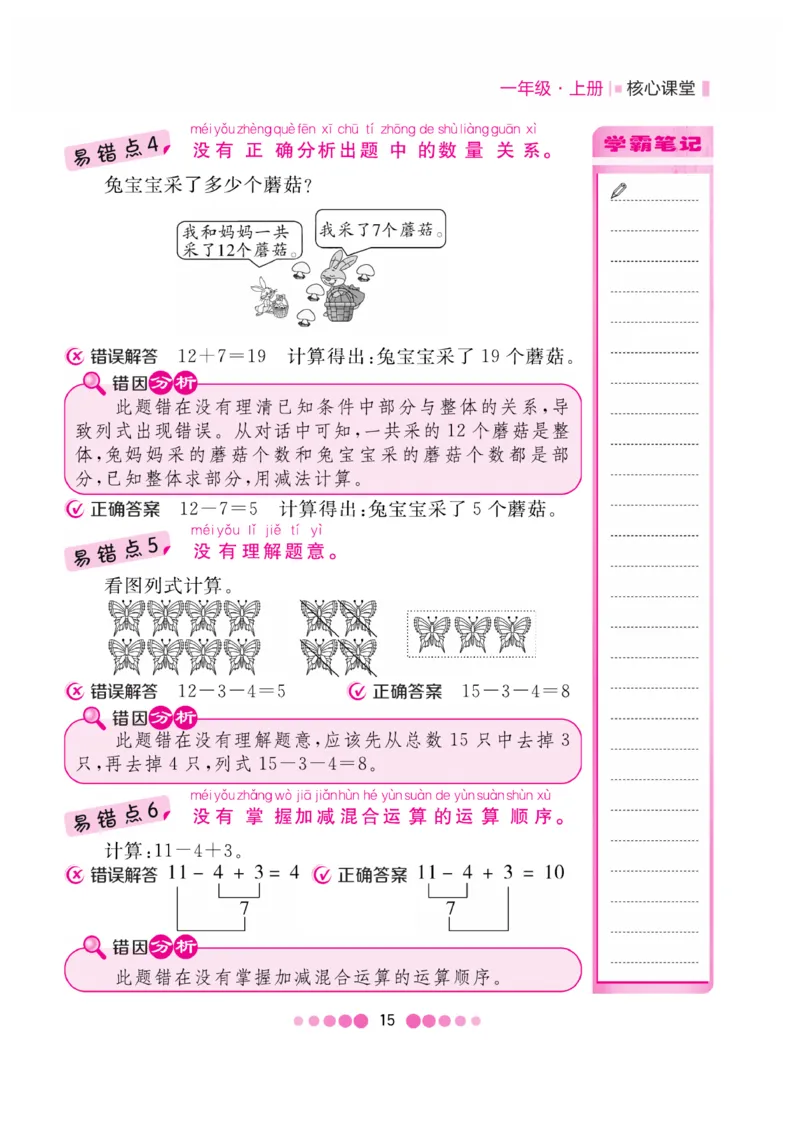 一年级·上册 核心课堂
méi yǒu zhèng què fēn xī chū tí zhōng de shù liàng guān xì
易错点4 没有正确分析出题中的数量关系。
学霸笔记
兔宝宝采了多少个蘑菇?
我和妈妈一共
采了12个蘑菇。
我采了7个蘑菇。
错误解答 12+7=19 计算得出:兔宝宝采了19个蘑菇。
错因分析
此题错在没有理清已知条件中部分与整体的关系,导
致列式出现错误。从对话中可知,一共采的12个蘑菇是整
体,兔妈妈采的蘑菇个数和兔宝宝采的蘑菇个数都是部
分,已知整体求部分,用减法计算。
正确答案 12-7=5 计算得出:兔宝宝采了5个蘑菇。
méi yǒu lǐ jiě tí yì
易错点5 没有理解题意。
看图列式计算。
错误解答 12-3-4=5 正确答案 15-3-4=8
错因分析
此题错在没有理解题意,应该先从总数15只中去掉3
只,再去掉4只,列式15-3-4=8。
méi yǒu zhǎng wò jiā jiǎn hùn hé yùn suàn de yùn suàn shùn xù
易错点6 没有掌握加减混合运算的运算顺序。
计算:11-4+3。
错误解答 11-4+3=4 正确答案 11-4+3=10
7 7
错因分析
此题错在没有掌握加减混合运算的运算顺序。
15